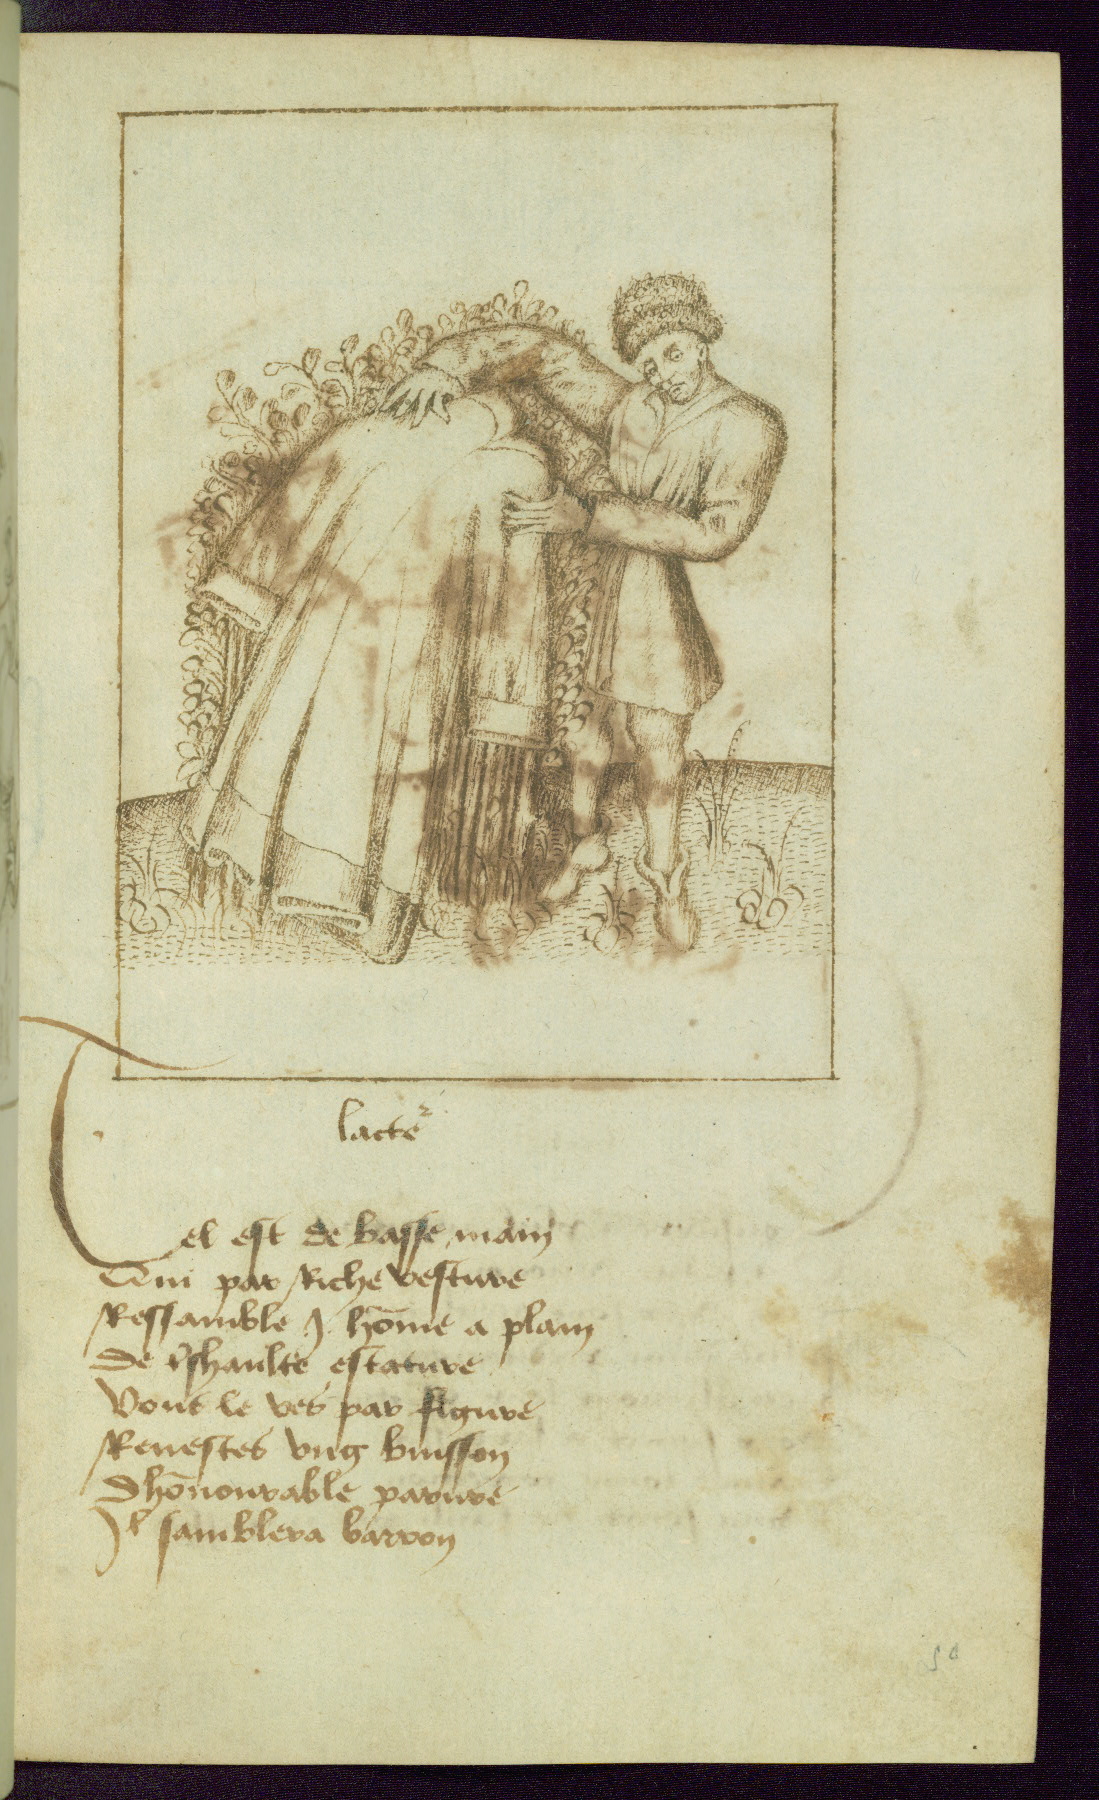 lacteꝰ
Tel est de basse main
Qui par Riche vesture
Ressamble .j. hōme a plain
De tshaulte estature
Vous le ves par figure
Reuestes vng buisson
Dhōnourable parure
Jl samblera barron
50